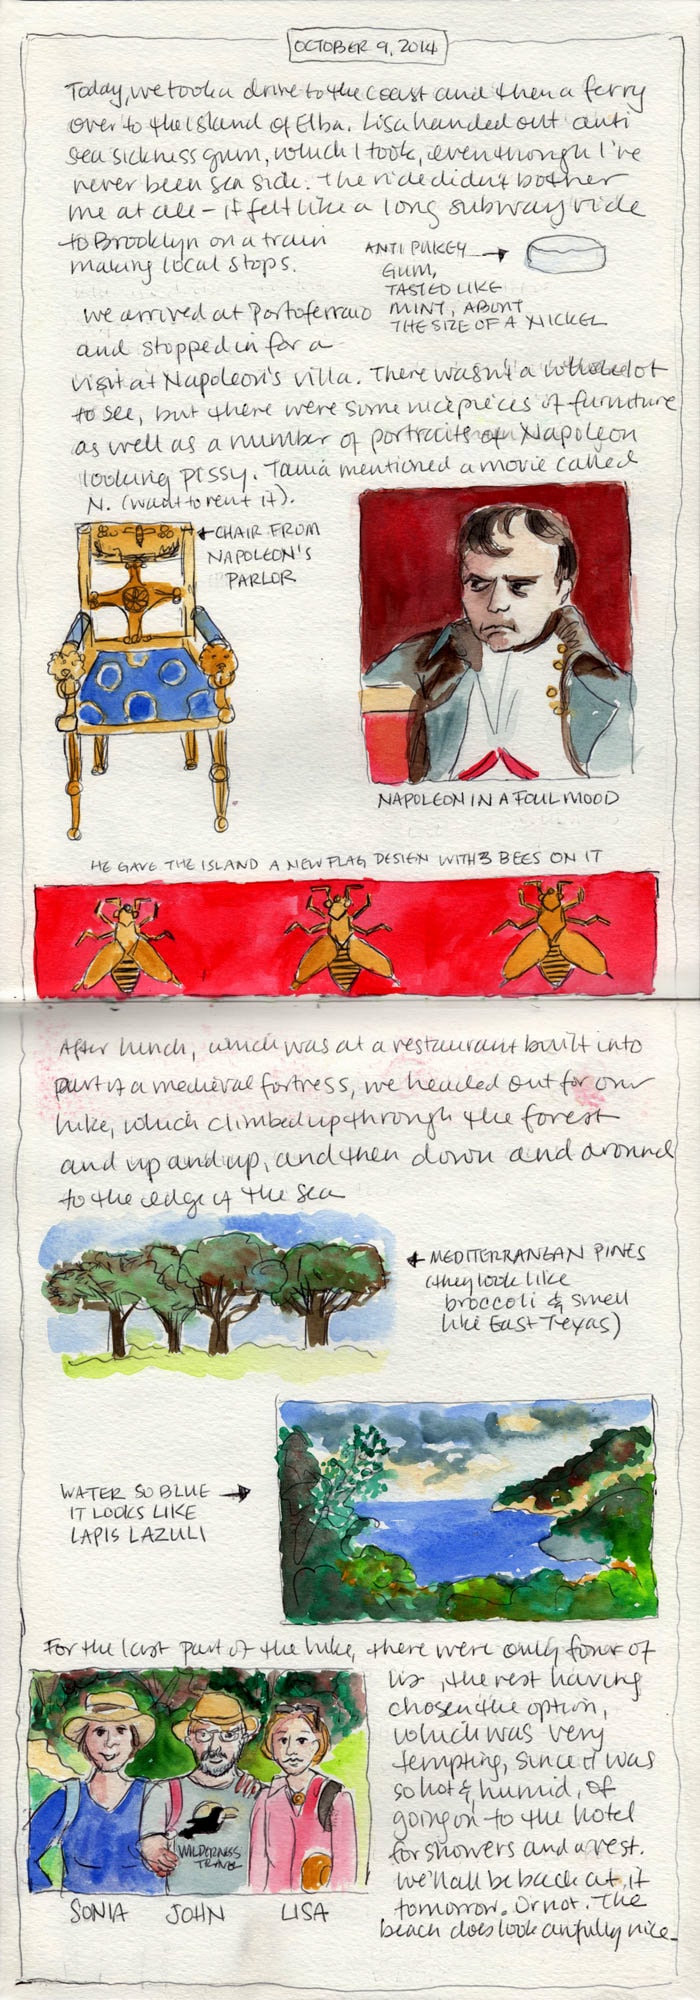 OCTOBER 9, 2014
Today, we took a drive to the coast and then a ferry
over to the island of Elba. Lisa handed out anti
sea sickness gum, which I took, even though I've
never been sea sick. The ride didn't bother
me at all – it felt like a long subway ride
to Brooklyn on a train
making local stops.
ANTI PUKEY
GUM,
TASTED LIKE
MINT, ABOUT
THE SIZE OF A NICKEL
We arrived at Portoferraio
and stopped in for a
visit at Napoleon's villa. There wasn't a whole lot
to see, but there were some nice pieces of furniture
as well as a number of portraits of Napoleon
looking pissy. Tania mentioned a movie called
N. (want to rent it).
CHAIR FROM
NAPOLEON'S
PARLOR
NAPOLEON IN A FOUL MOOD
HE GAVE THE ISLAND A NEW FLAG DESIGN WITH 3 BEES ON IT
After lunch, which was at a restaurant built into
part of a medieval fortress, we headed out for our
hike, which climbed up through the forest
and up and up, and then down and around
to the edge of the sea
MEDITERRANEAN PINES
(they look like
broccoli & smell
like East Texas)
WATER SO BLUE
IT LOOKS LIKE
LAPIS LAZULI
For the last part of the hike, there were only four of
us, the rest having
chosen the option,
which was very
tempting, since it was
so hot & humid, of
going on to the hotel
for showers and a rest.
We'll all be back at it
tomorrow. Or not. The
beach does look awfully nice.
WILDERNESS
TRAVEL
SONIA JOHN LISA